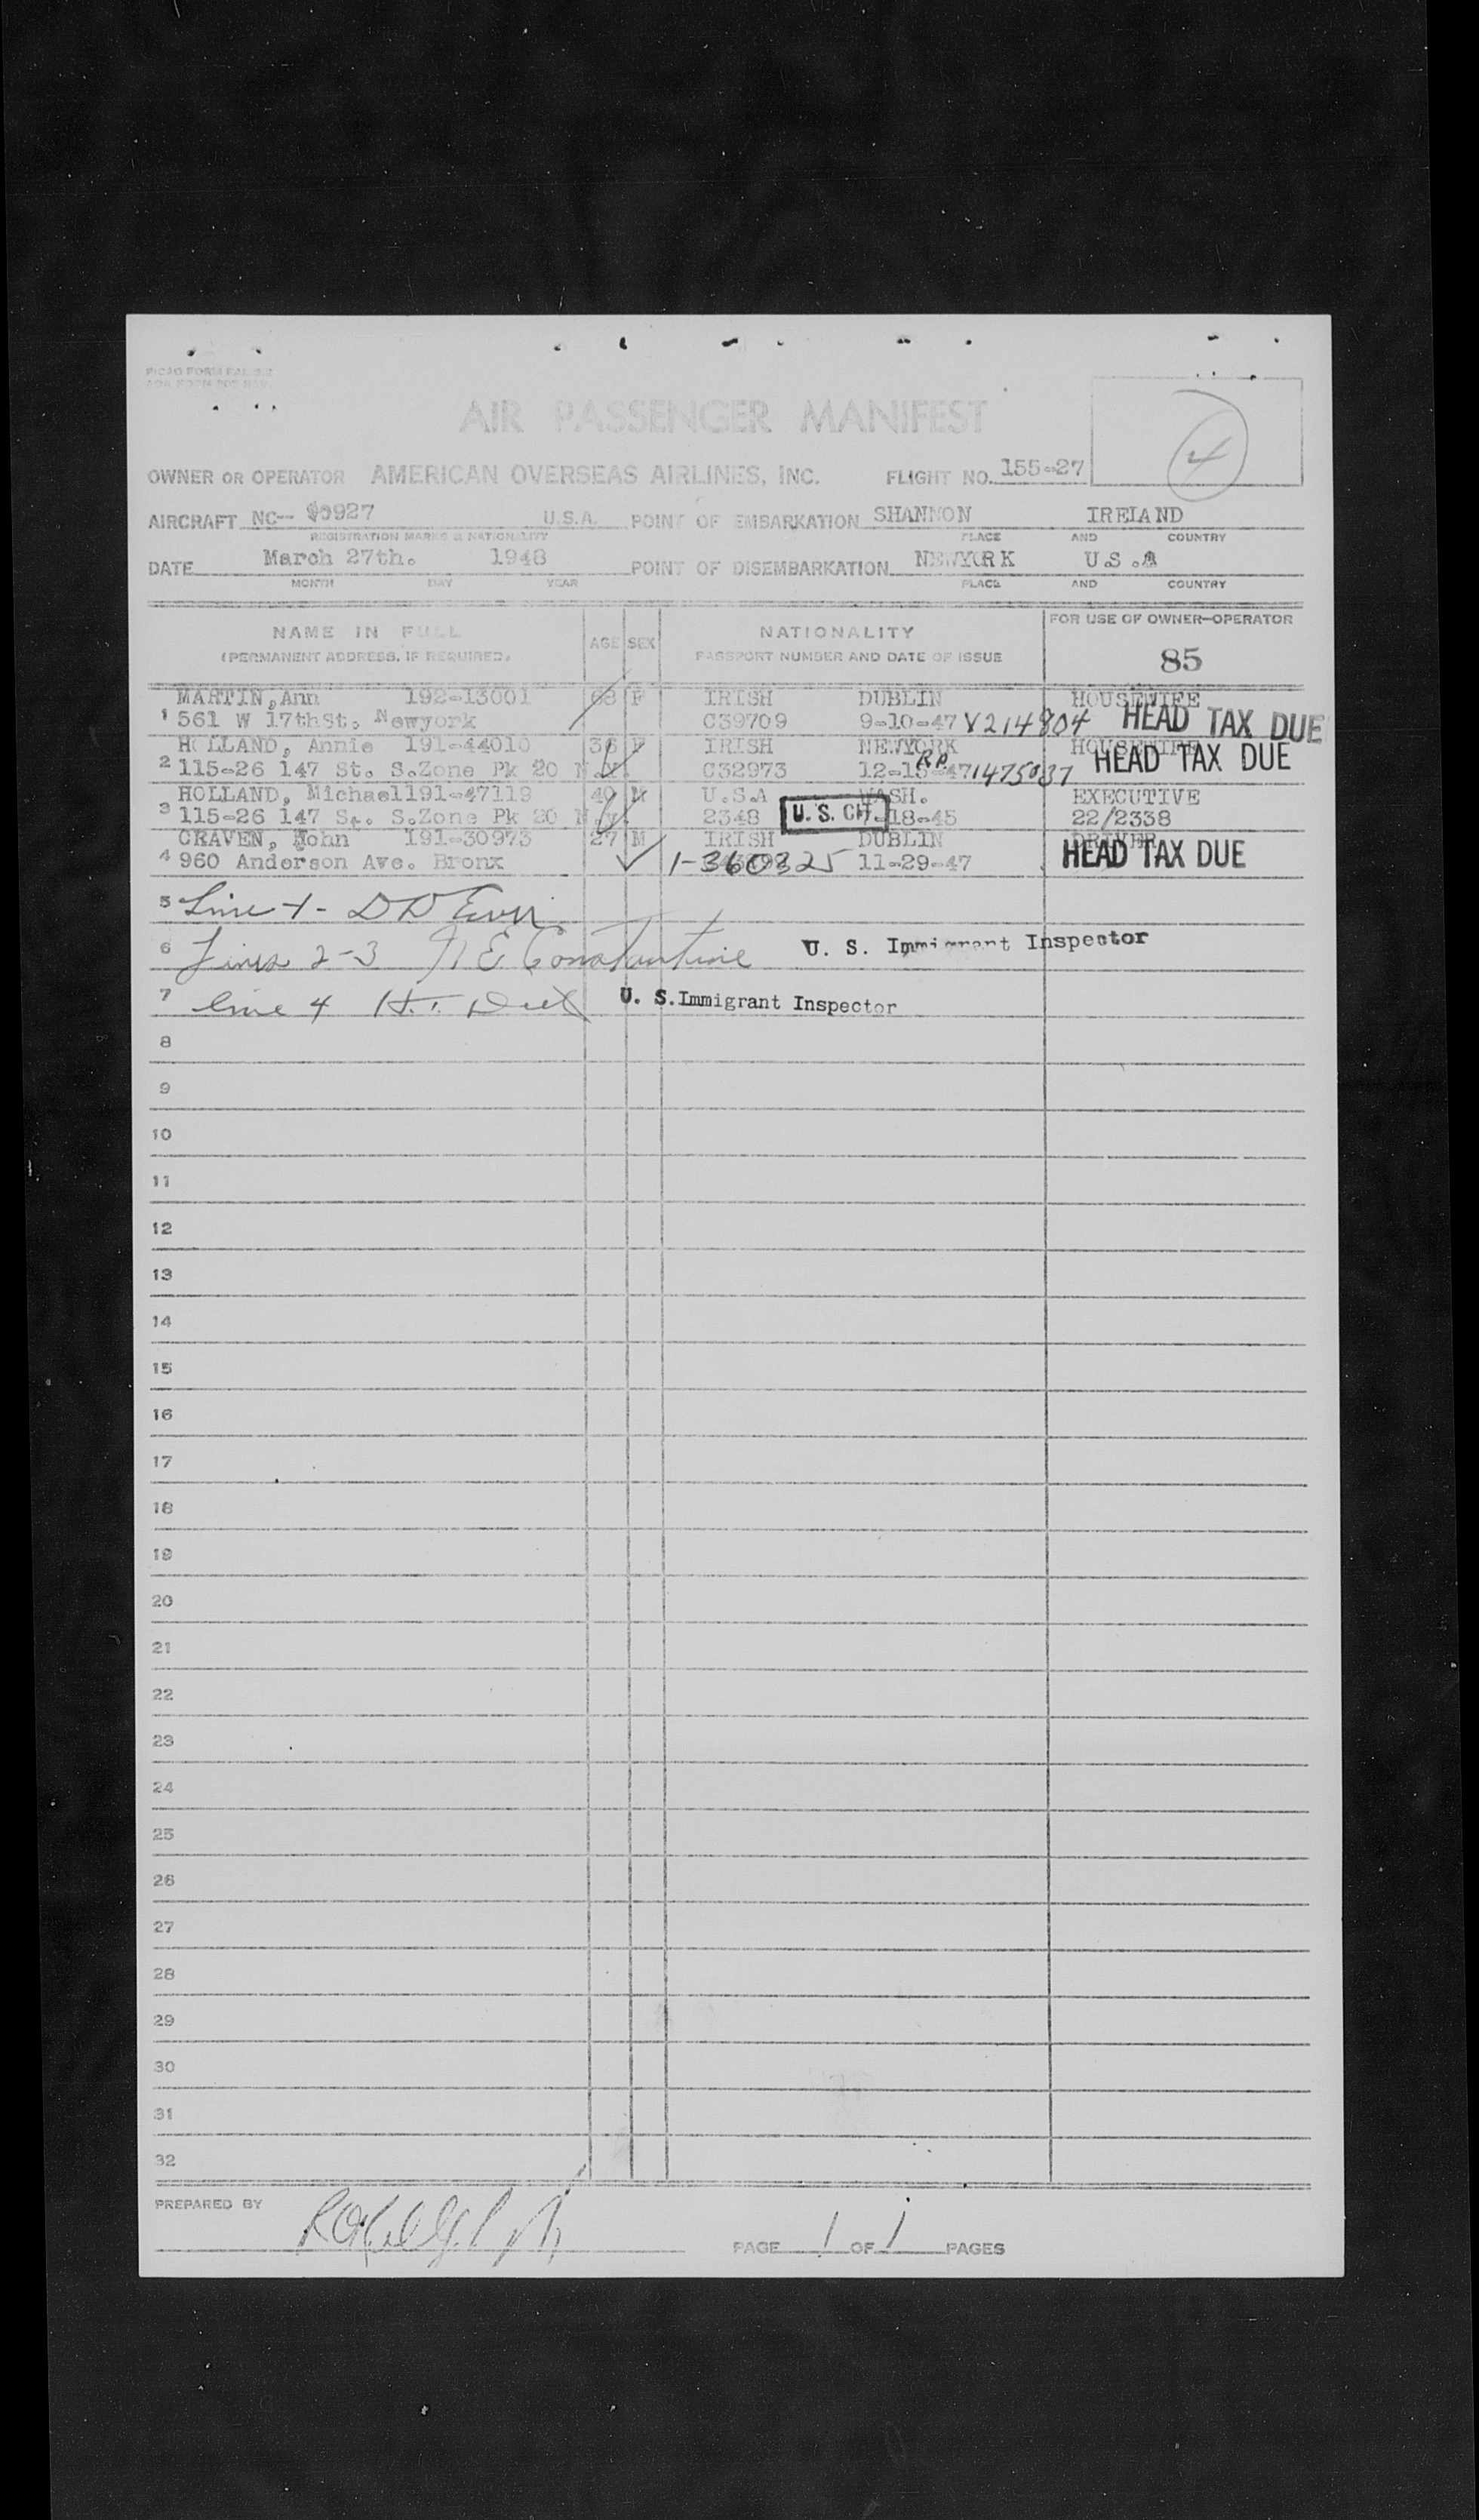 AIR PASSENGER MANIFEST
4
OWNER OR OPERATOR AMERICAN OVERSEAS AIRLINES, INC. FLIGHT NO. 155-27
AIRCRAFT NC-- 90927 U.S.A. POINT OF EMBARKATION SHANNON IRELAND
REGISTRATION MARKS & NATIONALITY PLACE AND COUNTRY
DATE March 27th. 1948 POINT OF DISEMBARKATION NEWYORK U.S.A
MONTH DAY YEAR PLACE AND COUNTRY
NAME IN FULL AGE SEX NATIONALITY FOR USE OF OWNER-OPERATOR
(PERMANENT ADDRESS, IF REQUIRED. PASSPORT NUMBER AND DATE OF ISSUE 85
MARTIN,Ann 192-13001 68 F IRISH DUBLIN HOUSEWIFE
1 561 W 17thSt. Newyork C39709 9-10-47 V214804 HEAD TAX DUE
HOLLAND, Annie 191-44010 38 F IRISH NEWYORK HOUSEWIFE
2 115-26 147 St. S.Zone Pk 20 N.Y. C32973 12-15-47 RP 1475037 HEAD TAX DUE
HOLLAND, Michael191-47119 40 M U.S.A WASH. EXECUTIVE
3 115-26 147 St. S.Zone Pk 20 N.Y. 2348 U. S. CIT. -18-45 22/2338
CRAVEN, John 191-30973 27 M IRISH DUBLIN DRIVER
4 960 Anderson Ave. Bronx 1-360325 11-29-47 HEAD TAX DUE
5 Line 1 - D D
6 Lines 2-3 N E Constantine U. S. Immigrant Inspector
7 Line 4 H.T. U. S. Immigrant Inspector
8
9
10
11
12
13
14
15
16
17
18
19
20
21
22
23
24
25
26
27
28
29
30
31
32
PREPARED BY
PAGE 1 OF 1 PAGES